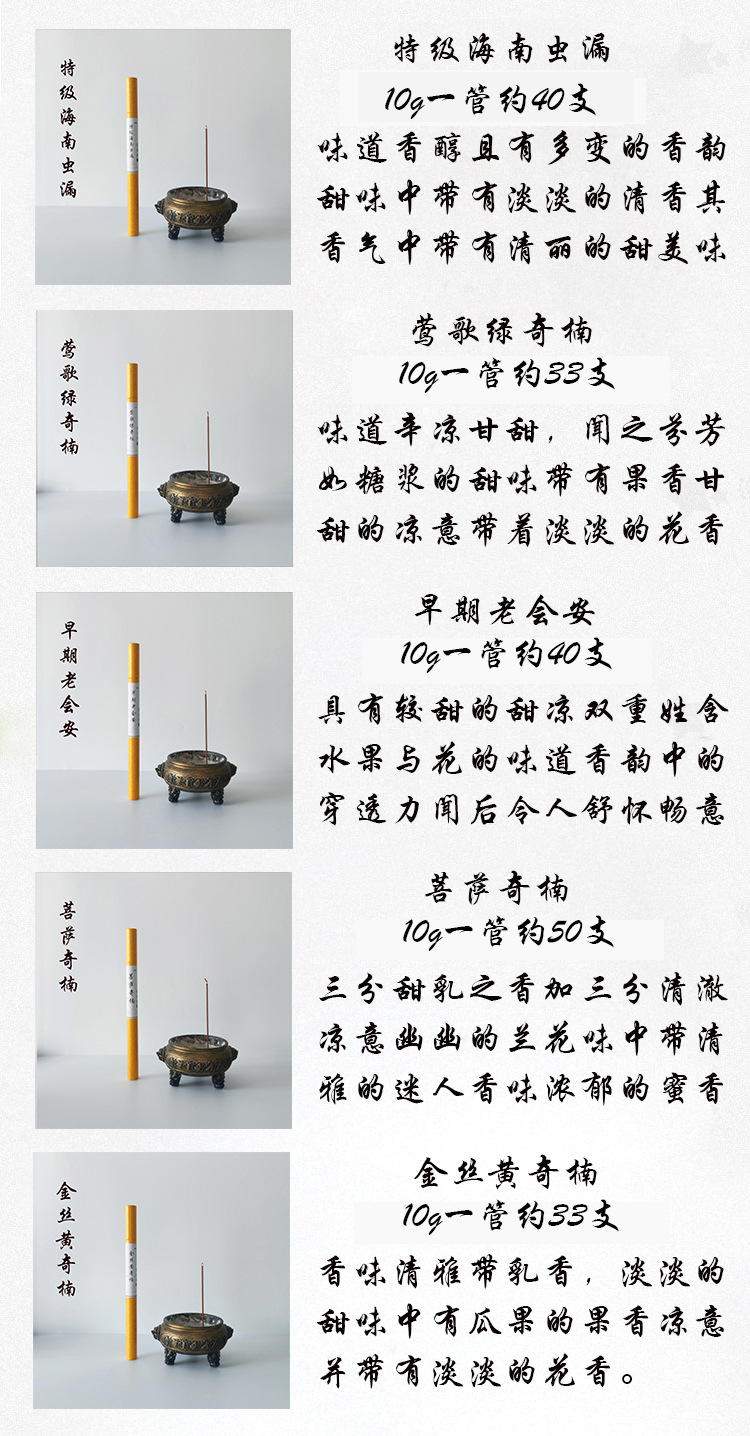 特级海南虫漏
特级海南虫漏
10g一管约40支
味道香醇且有多变的香韵
甜味中带有淡淡的清香其
香气中带有清丽的甜美味
莺歌绿奇楠
莺歌绿奇楠
10g一管约33支
味道辛凉甘甜，闻之芬芳
如糖浆的甜味带有果香甘
甜的凉意带着淡淡的花香
早期老会安
早期老会安
10g一管约40支
具有较甜的甜凉双重姓含
水果与花的味道香韵中的
穿透力闻后令人舒怀畅意
菩萨奇楠
菩萨奇楠
10g一管约50支
三分甜乳之香加三分清澈
凉意幽幽的兰花味中带清
雅的迷人香味浓郁的蜜香
金丝黄奇楠
金丝黄奇楠
10g一管约33支
香味清雅带乳香，淡淡的
甜味中有瓜果的果香凉意
并带有淡淡的花香。